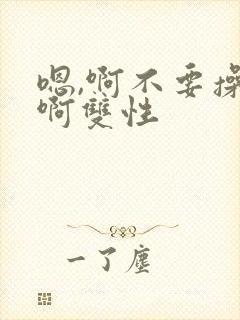 嗯,啊不要操
啊雙性
一了塵